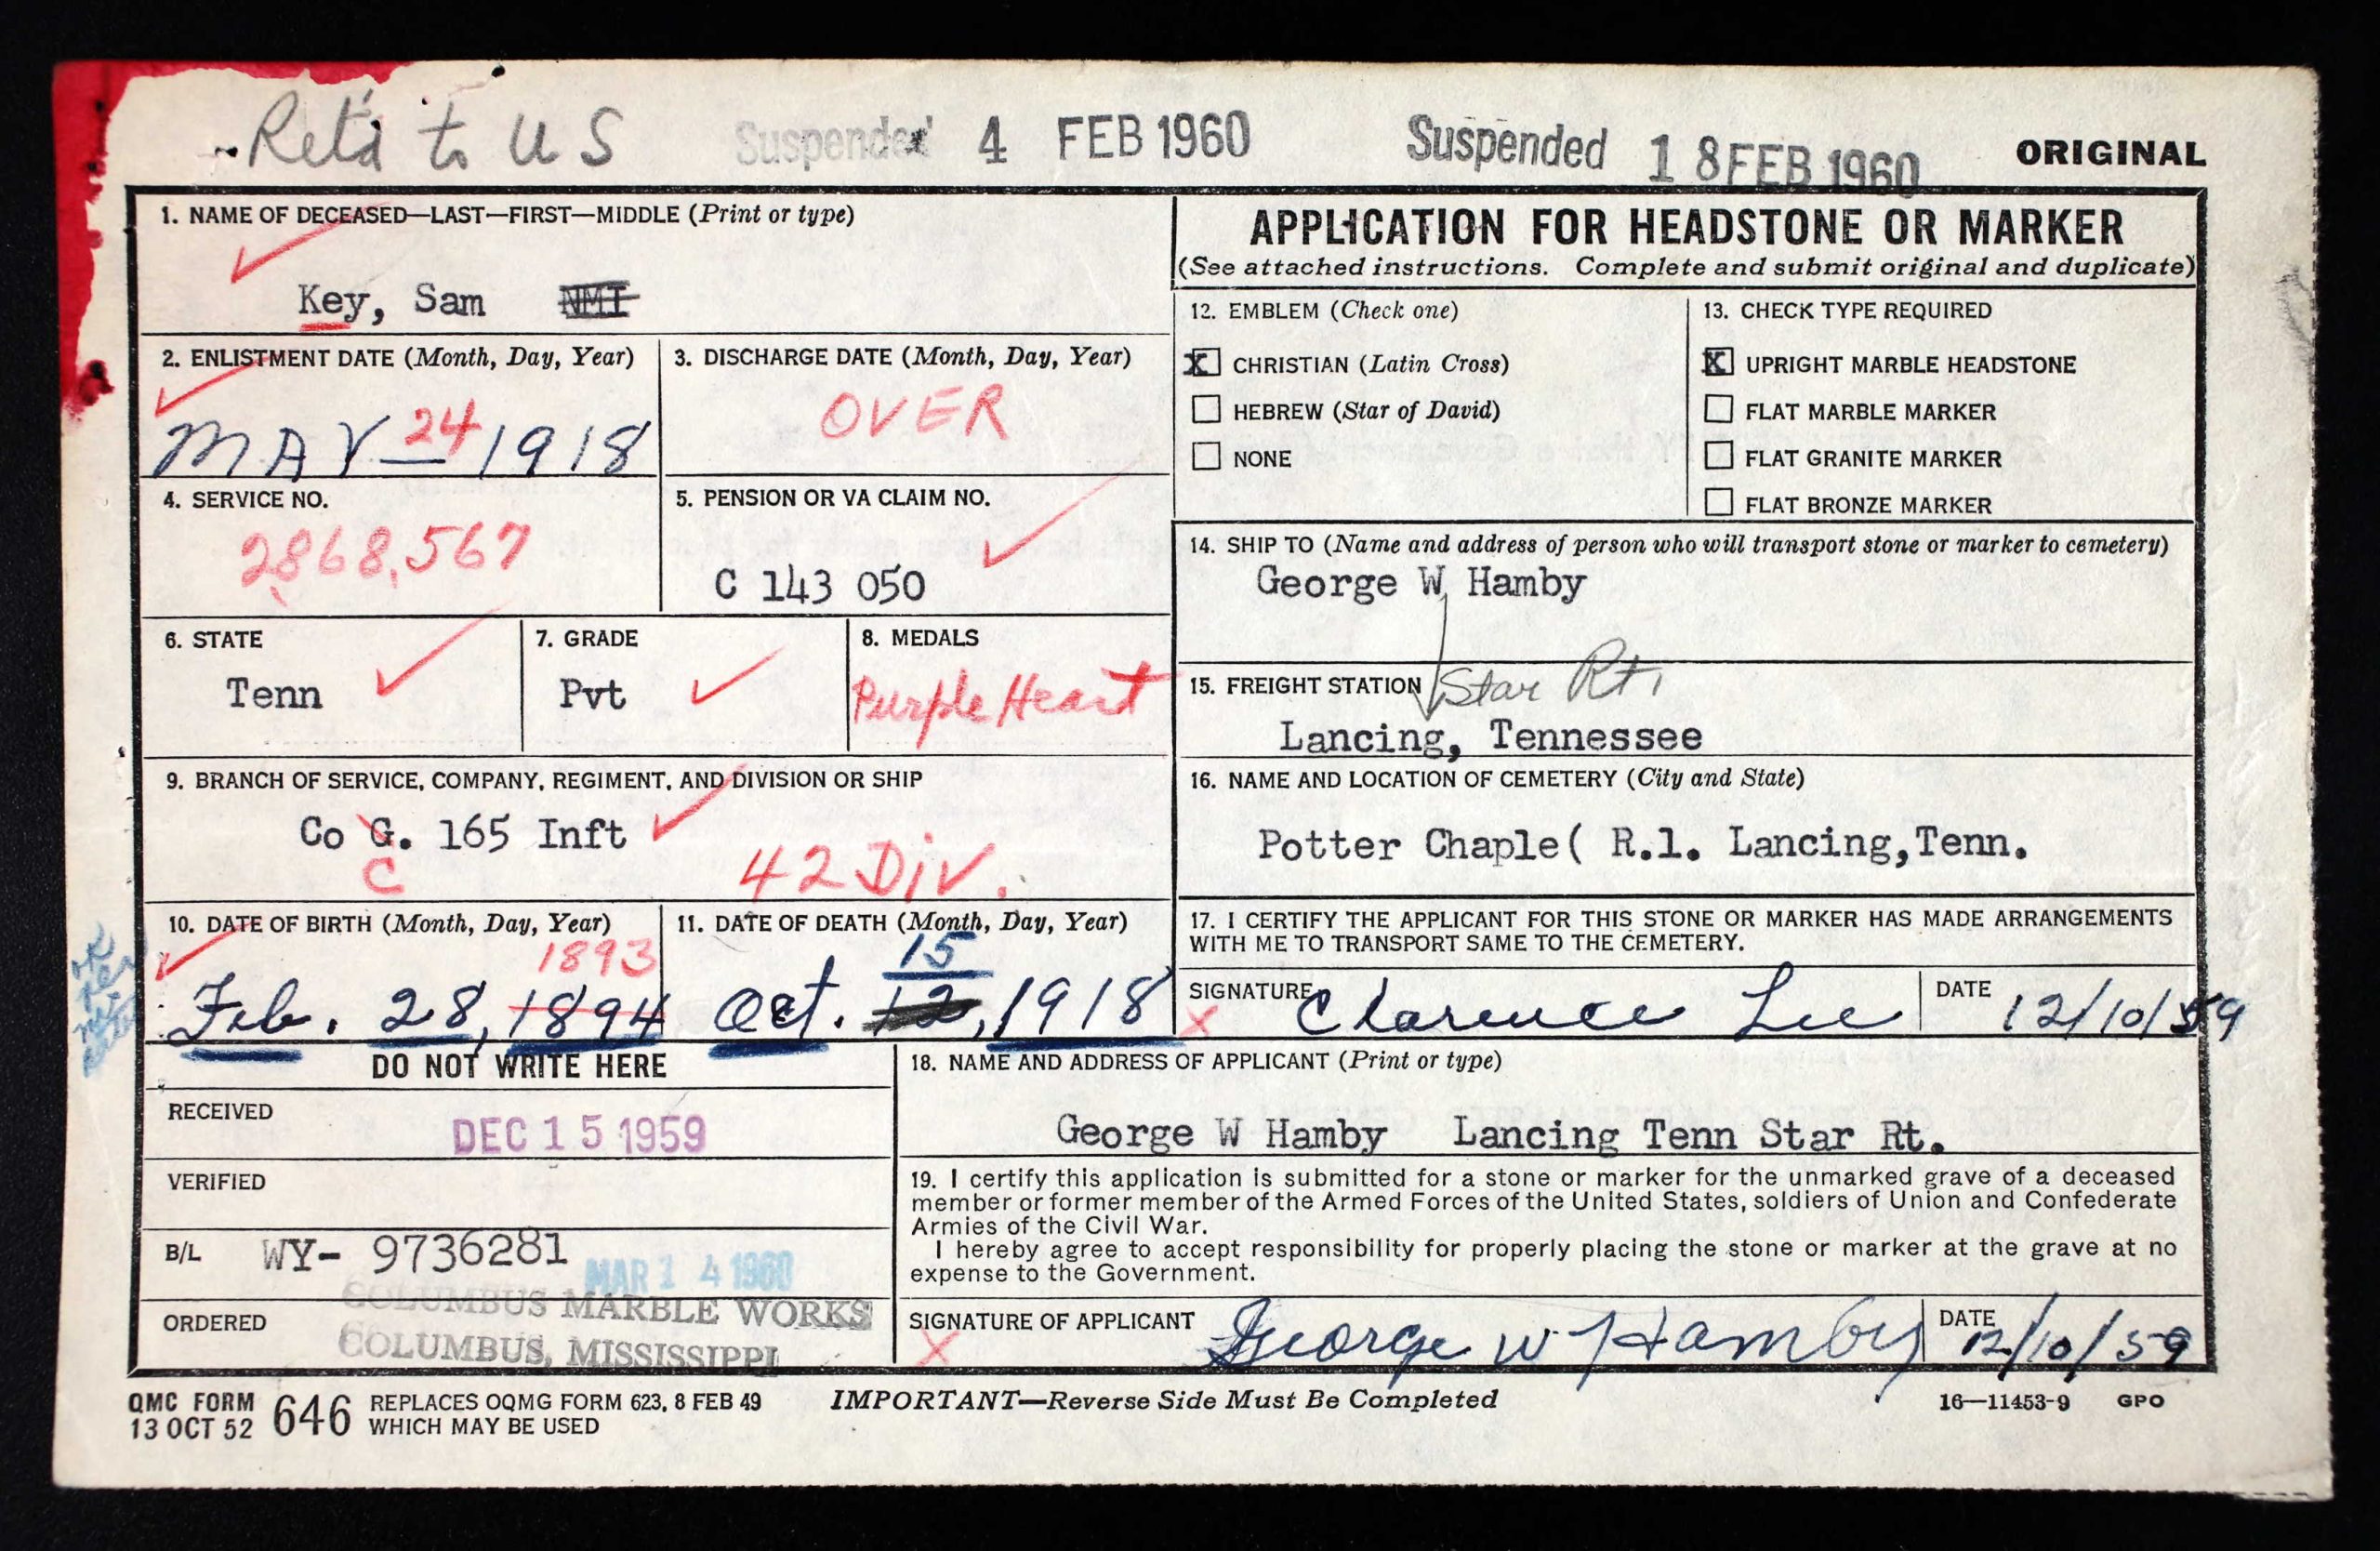 Retd to US
Suspended 4 FEB 1960
Suspended 18 FEB 1960
ORIGINAL
1. NAME OF DECEASED—LAST—FIRST—MIDDLE (Print or type)
Key, Sam NMI
2. ENLISTMENT DATE (Month, Day, Year)
MAY 24 1918
3. DISCHARGE DATE (Month, Day, Year)
OVER
4. SERVICE NO.
2868,567
5. PENSION OR VA CLAIM NO.
C 143 050
6. STATE
Tenn
7. GRADE
Pvt
8. MEDALS
Purple Heart
9. BRANCH OF SERVICE, COMPANY, REGIMENT, AND DIVISION OR SHIP
Co G. 165 Inft
C
42 Div.
10. DATE OF BIRTH (Month, Day, Year)
1893
Feb. 28, 1894
11. DATE OF DEATH (Month, Day, Year)
15
Oct. 12, 1918
APPLICATION FOR HEADSTONE OR MARKER
(See attached instructions. Complete and submit original and duplicate)
12. EMBLEM (Check one)
X CHRISTIAN (Latin Cross)
HEBREW (Star of David)
NONE
13. CHECK TYPE REQUIRED
X UPRIGHT MARBLE HEADSTONE
FLAT MARBLE MARKER
FLAT GRANITE MARKER
FLAT BRONZE MARKER
14. SHIP TO (Name and address of person who will transport stone or marker to cemetery)
George W Hamby
15. FREIGHT STATION
Star Rt.
Lancing, Tennessee
16. NAME AND LOCATION OF CEMETERY (City and State)
Potter Chaple( R.1. Lancing,Tenn.
17. I CERTIFY THE APPLICANT FOR THIS STONE OR MARKER HAS MADE ARRANGEMENTS
WITH ME TO TRANSPORT SAME TO THE CEMETERY.
SIGNATURE
X Clarence Lee
DATE
12/10/59
DO NOT WRITE HERE
RECEIVED
DEC 15 1959
VERIFIED
B/L WY- 9736281
MAR 14 1960
ORDERED
COLUMBUS MARBLE WORKS
COLUMBUS, MISSISSIPPI
18. NAME AND ADDRESS OF APPLICANT (Print or type)
George W Hamby Lancing Tenn Star Rt.
19. I certify this application is submitted for a stone or marker for the unmarked grave of a deceased
member or former member of the Armed Forces of the United States, soldiers of Union and Confederate
Armies of the Civil War.
I hereby agree to accept responsibility for properly placing the stone or marker at the grave at no
expense to the Government.
SIGNATURE OF APPLICANT
X George W Hamby
DATE
12/10/59
QMC FORM
13 OCT 52 646
REPLACES OQMG FORM 623, 8 FEB 49
WHICH MAY BE USED
IMPORTANT—Reverse Side Must Be Completed
16—11453-9 GPO